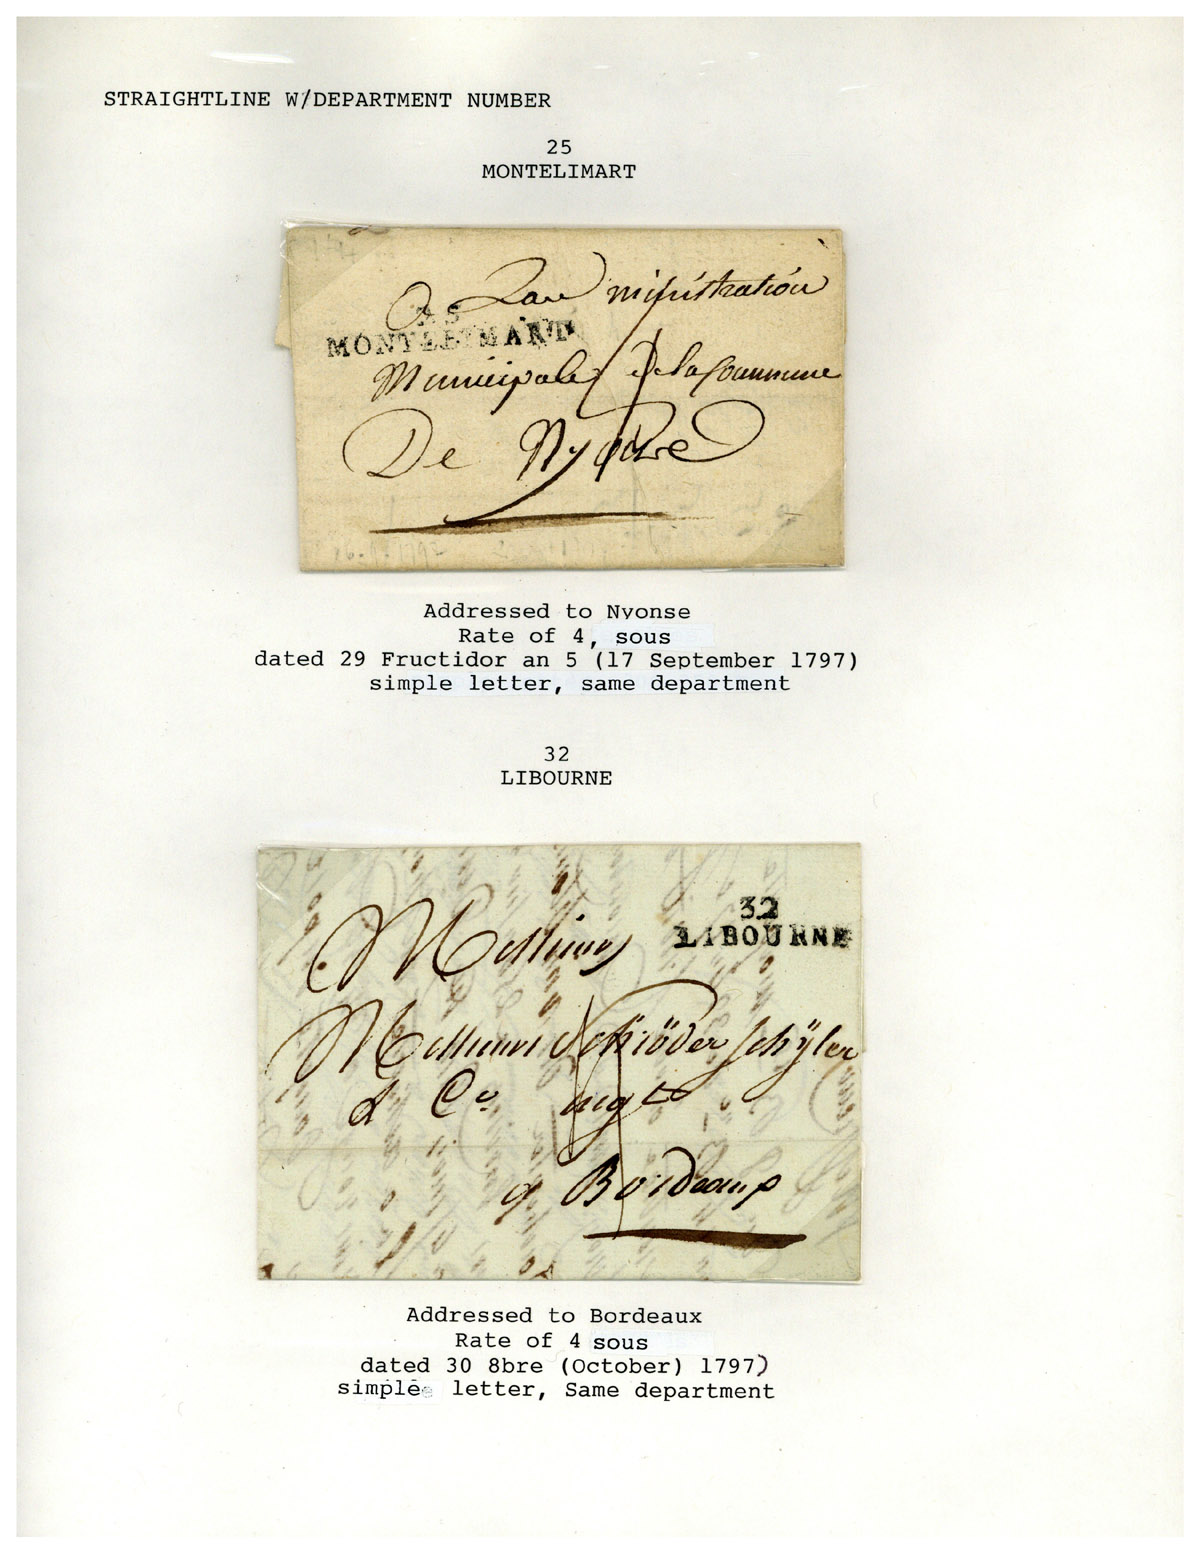 STRAIGHTLINE W/DEPARTMENT NUMBER
25
MONTELIMART
A Lad ministration
25
MONTELIMART
Municipale De la Commune
De Nyonse
Addressed to Nyonse
Rate of 4, sous
dated 29 Fructidor an 5 (17 September 1797)
simple letter, same department
32
LIBOURNE
32
LIBOURNE
Messieurs
Messieurs Schröder Schÿler
& Co. Negts
a Bordeaux
Addressed to Bordeaux
Rate of 4 sous
dated 30 8bre (October) 1797)
simple letter, Same department